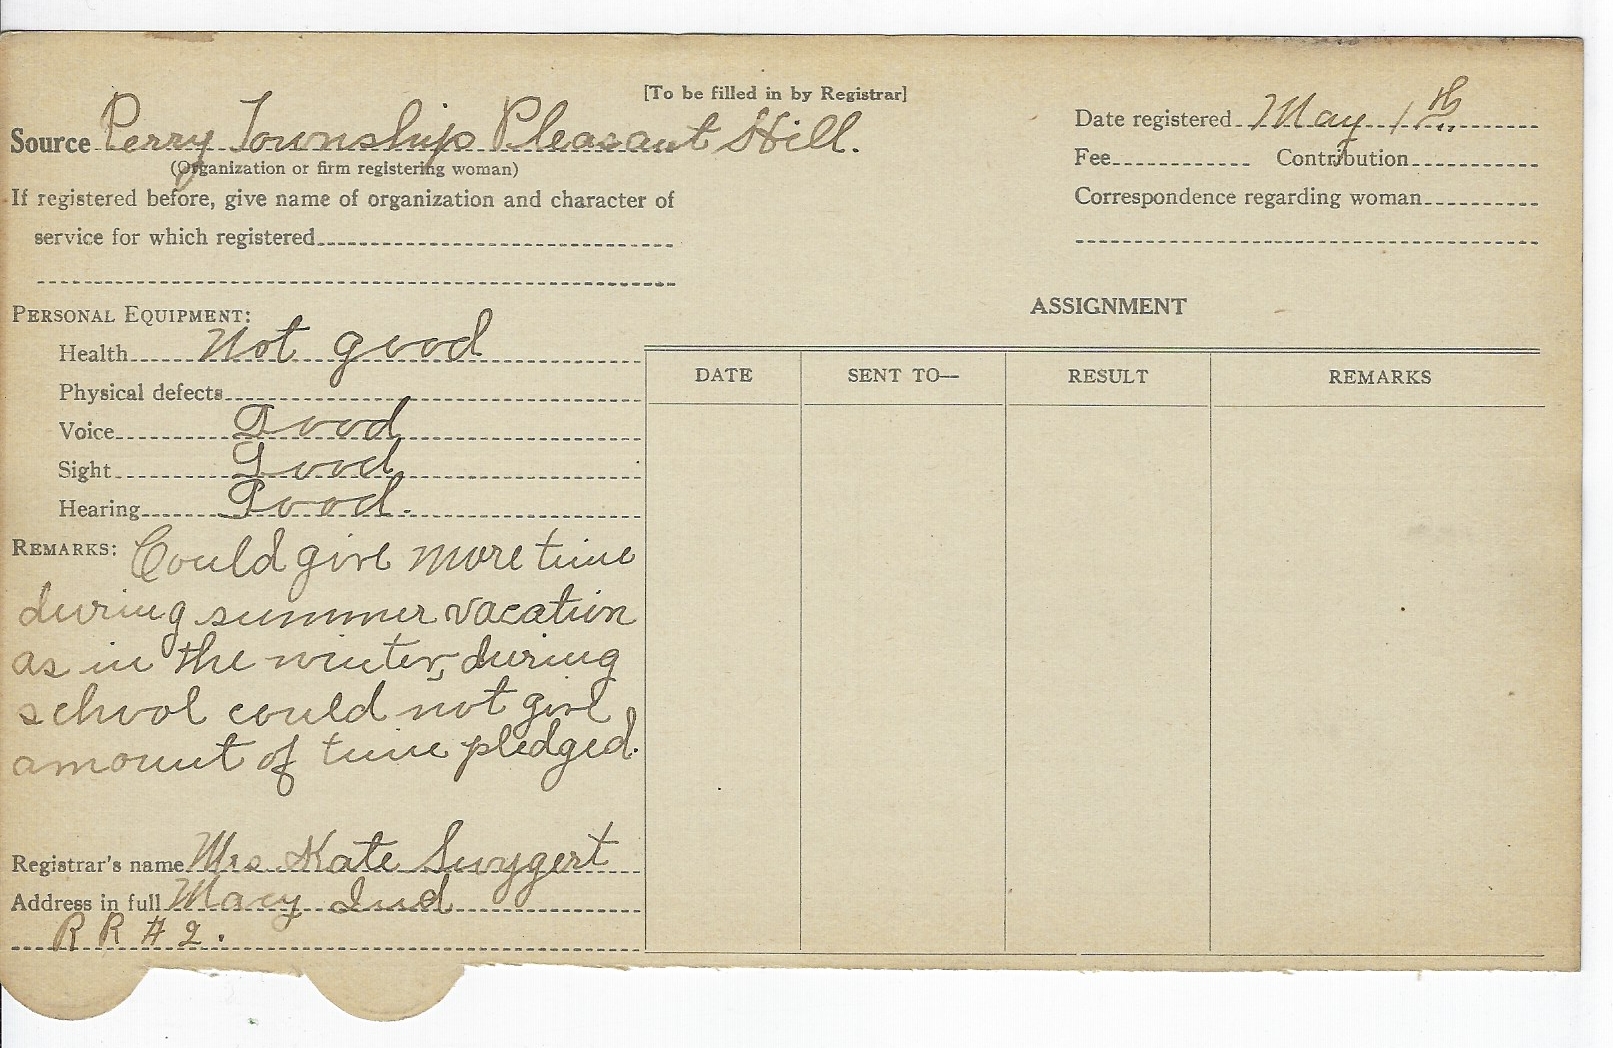 [To be filled in by Registrar]
Source Perry Township Pleasant Hill.
(Organization or firm registering woman)
If registered before, give name of organization and character of
service for which registered
Date registered May 1th
Fee Contribution
Correspondence regarding woman
PERSONAL EQUIPMENT:
Health Not good
Physical defects
Voice Good
Sight Good
Hearing Good.
REMARKS: Could give more time
during summer vacation
as in the winter, during
school could not give
amount of time pledged.
Registrar's name Mrs Kate Swygert
Address in full Macy Ind
R R # 2.
ASSIGNMENT
DATE SENT TO— RESULT REMARKS